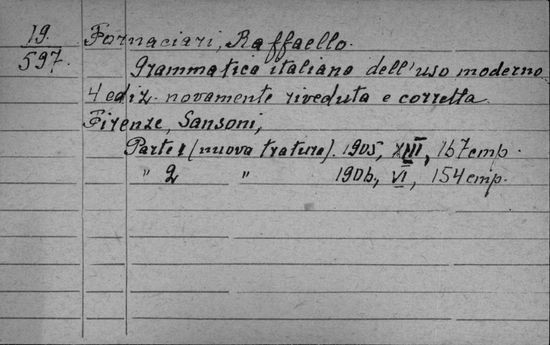 19. Fornaciari, Raffaello.
597. Grammatica italiana dell'uso moderno
4 ediz. novamente riveduta e corretta.
Firenze, Sansoni,
Parte 1 (nuova tratura). 1905, XIII, 167 emp.
" 2 " 1906, VI, 154 emp.